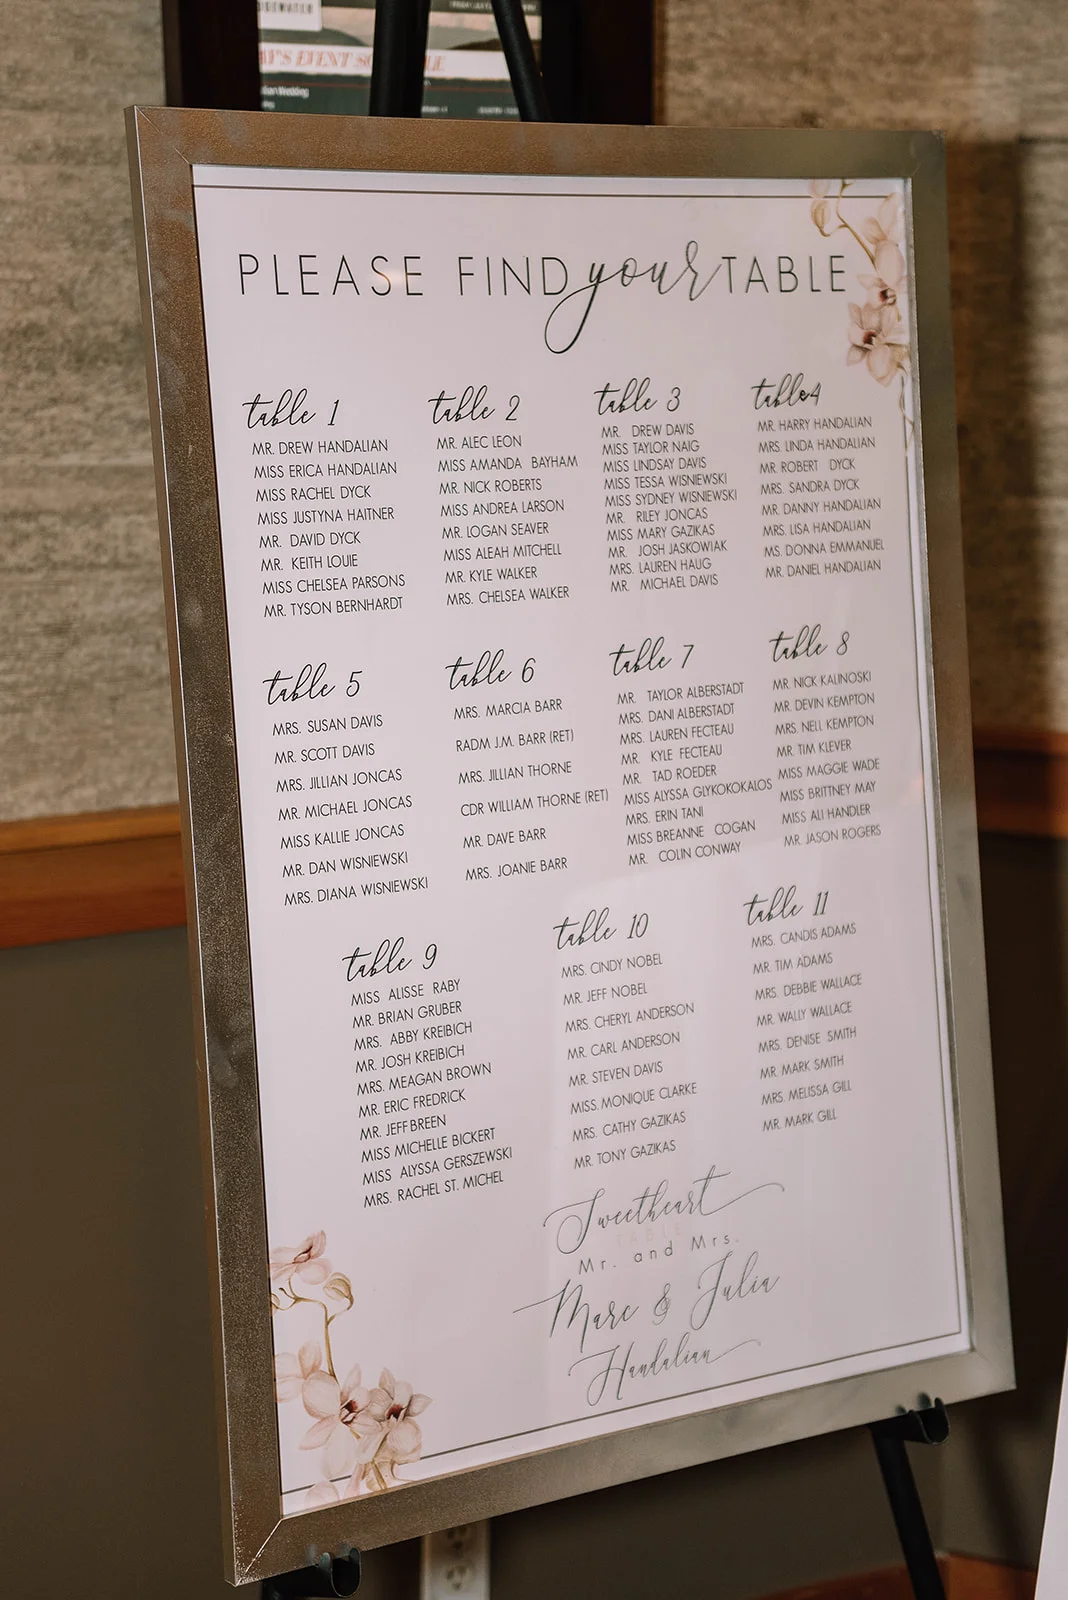 PLEASE FIND your TABLE
table 1
MR. DREW HANDALIAN
MISS ERICA HANDALIAN
MISS RACHEL DYCK
MISS JUSTYNA HAITNER
MR. DAVID DYCK
MR. KEITH LOUIE
MISS CHELSEA PARSONS
MR. TYSON BERNHARDT
table 2
MR. ALEC LEON
MISS AMANDA BAYHAM
MR. NICK ROBERTS
MISS ANDREA LARSON
MR. LOGAN SEAVER
MISS ALEAH MITCHELL
MR. KYLE WALKER
MRS. CHELSEA WALKER
table 3
MR. DREW DAVIS
MISS TAYLOR NAIG
MISS LINDSAY DAVIS
MISS TESSA WISNIEWSKI
MISS SYDNEY WISNIEWSKI
MR. RILEY JONCAS
MISS MARY GAZIKAS
MR. JOSH JASKOWIAK
MRS. LAUREN HAUG
MR. MICHAEL DAVIS
table 4
MR. HARRY HANDALIAN
MRS. LINDA HANDALIAN
MR. ROBERT DYCK
MRS. SANDRA DYCK
MR. DANNY HANDALIAN
MRS. LISA HANDALIAN
MS. DONNA EMMANUEL
MR. DANIEL HANDALIAN
table 5
MRS. SUSAN DAVIS
MR. SCOTT DAVIS
MRS. JILLIAN JONCAS
MR. MICHAEL JONCAS
MISS KALLIE JONCAS
MR. DAN WISNIEWSKI
MRS. DIANA WISNIEWSKI
table 6
MRS. MARCIA BARR
RADM J.M. BARR (RET)
MRS. JILLIAN THORNE
CDR WILLIAM THORNE (RET)
MR. DAVE BARR
MRS. JOANIE BARR
table 7
MR. TAYLOR ALBERSTADT
MRS. DANI ALBERSTADT
MRS. LAUREN FECTEAU
MR. KYLE FECTEAU
MR. TAD ROEDER
MISS ALYSSA GLYKOKOKALOS
MRS. ERIN TANI
MISS BREANNE COGAN
MR. COLIN CONWAY
table 8
MR. NICK KALINOSKI
MR. DEVIN KEMPTON
MRS. NELL KEMPTON
MR. TIM KLEVER
MISS MAGGIE WADE
MISS BRITTNEY MAY
MISS ALI HANDLER
MR. JASON ROGERS
table 9
MISS ALISSE RABY
MR. BRIAN GRUBER
MRS. ABBY KREIBICH
MR. JOSH KREIBICH
MRS. MEAGAN BROWN
MR. ERIC FREDRICK
MR. JEFF BREEN
MISS MICHELLE BICKERT
MISS ALYSSA GERSZEWSKI
MRS. RACHEL ST. MICHEL
table 10
MRS. CINDY NOBEL
MR. JEFF NOBEL
MRS. CHERYL ANDERSON
MR. CARL ANDERSON
MR. STEVEN DAVIS
MISS. MONIQUE CLARKE
MRS. CATHY GAZIKAS
MR. TONY GAZIKAS
table 11
MRS. CANDIS ADAMS
MR. TIM ADAMS
MRS. DEBBIE WALLACE
MR. WALLY WALLACE
MRS. DENISE SMITH
MR. MARK SMITH
MRS. MELISSA GILL
MR. MARK GILL
Sweetheart
TABLE
Mr. and Mrs.
Marc & Julia
Handalian